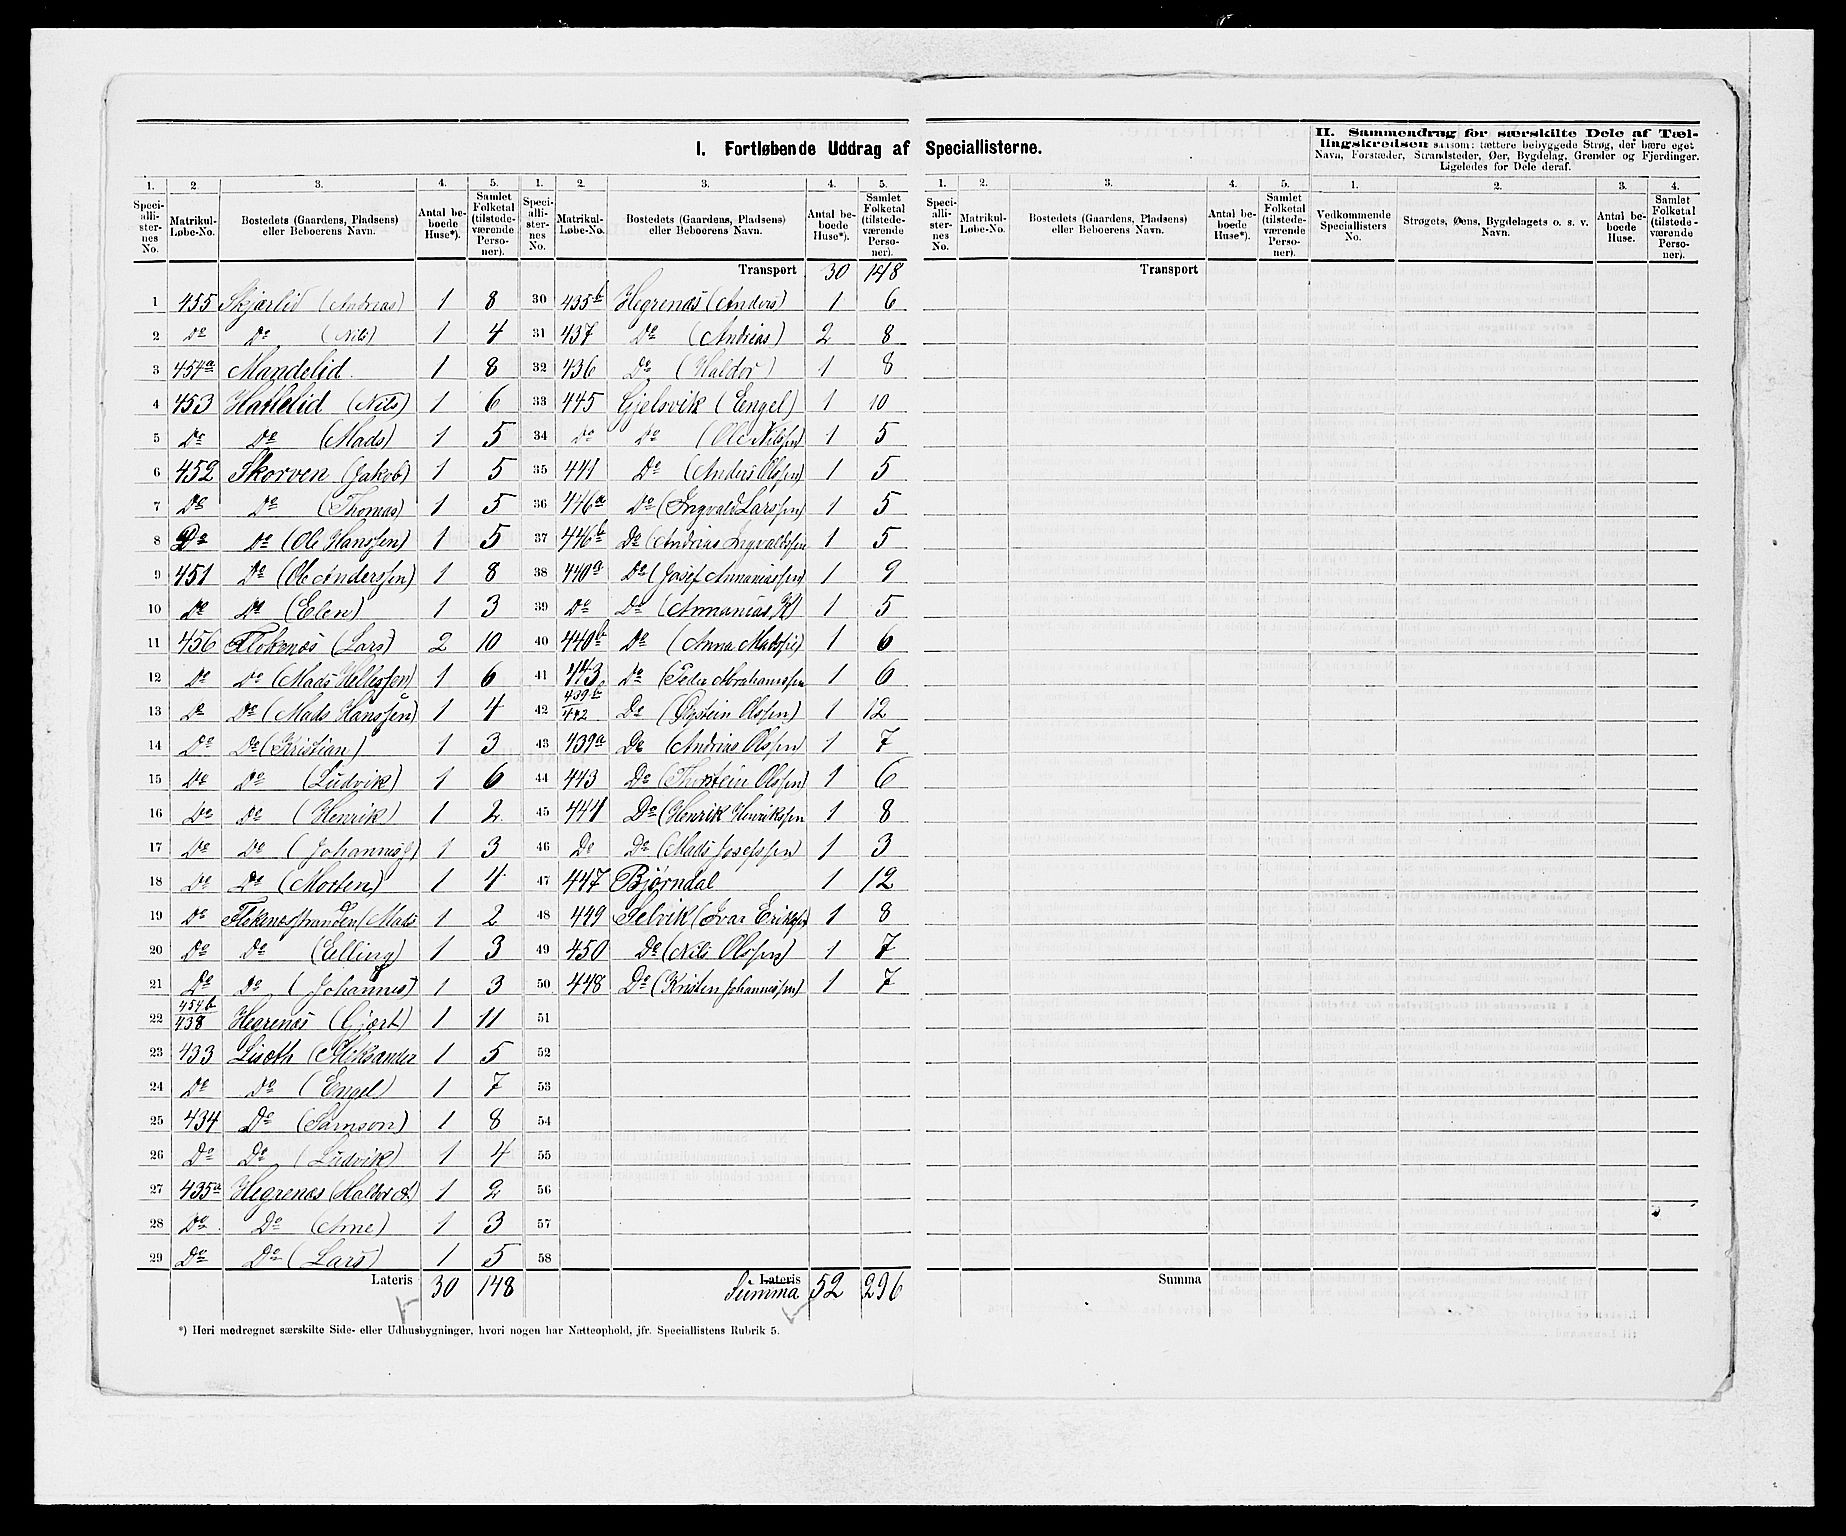 I. Fortløbende Uddrag af Speciallisterne.
II. Sammendrag for særskilte Dele af Tæl-
lingskredsen saasom: tættere bebyggede Strøg, der bære eget
Navn, Forstæder, Strandsteder, Øer, Bygdelag, Grender og Fjerdinger.
Ligeledes for Dele deraf.
1. 2. 3. 4. 5. 1. 2. 3. 4. 5. 1. 2. 3. 4. 5. 1. 2. 3. 4.
Speci-alli-ster-nes No. Matrikul-Løbe-No. Bostedets (Gaardens, Pladsens) eller Beboerens Navn. Antal be-boede Huse*). Samlet Folketal (tilstede-værende Perso-ner).
Speci-alli-ster-nes No. Matrikul-Løbe-No. Bostedets (Gaardens, Pladsens) eller Beboerens Navn. Antal be-boede Huse*). Samlet Folketal (tilstede-værende Perso-ner).
Speci-alli-ster-nes No. Matrikul-Løbe-No. Bostedets (Gaardens, Pladsens) eller Beboerens Navn. Antal be-boede Huse*). Samlet Folketal (tilstede-værende Perso-ner).
Vedkommende Speciallisters No. Strøgets, Øens, Bygdelagets o. s. v. Navn. Antal be-boede Huse. Samlet Folketal (tilstede-værende Perso-ner).
1 455 Skjærlid (Andreas) 1 8
2 Do Do (Nils) 1 4
3 454a Mandelid 1 8
4 453 Hattelid (Nils) 1 6
5 Do Do (Mads) 1 5
6 452 Skorven (Jakob) 1 5
7 Do Do (Thomas) 1 5
8 Do Do (Ole Hanssen) 1 5
9 451 Do (Ole Anderssen) 1 8
10 Do Do (Elen) 1 3
11 456 Flokenæs (Lars) 2 10
12 Do Do (Mads Hellissen) 1 6
13 Do Do (Mads Hanssen) 1 4
14 Do Do (Kristian) 1 3
15 Do Do (Ludvik) 1 6
16 Do Do (Henrik) 1 2
17 Do Do (Johannes) 1 3
18 Do Do (Morten) 1 4
19 Do Flokenæsstranden (Mads 1 2
20 Do Do (Elling) 1 3
21 Do Do (Johannes) 1 3
22 454b/438 Hegrenæs (Gjert) 1 11
23 433 Lisæth (Aleksander 1 5
24 Do Do (Engel) 1 7
25 434 Do (Samson) 1 8
26 Do Do (Ludvik) 1 4
27 435a Hegrenæs (Haldor A.) 1 2
28 Do Do (Arne) 1 3
29 Do Do (Lars) 1 5
Lateris 30 148
Transport 30 148
30 435b Hegrenæs (Anders) 1 6
31 437 Do (Andreas) 2 8
32 436 Do (Haldor) 1 8
33 445 Gjelsvik (Engel) 1 10
34 Do Do (Ole Nilssen) 1 5
35 441 Do (Anders Olssen) 1 5
36 446a Do (Ingvald Larssen) 1 5
37 446b Do (Andreas Ingvaldssen 1 5
38 440a Do (Josef Annaniassen) 1 9
39 Do Do (Annanias K) 1 5
40 440b Do (Anna Madsen) 1 6
41 443 Do (Peder Abrahamssen 1 6
42 439b/442 Do (Øystein Olssen) 1 12
43 439a Do (Andreas Olssen) 1 7
44 443 Do (Thorstein Olssen) 1 6
45 444 Do (Henrik Henrikssen 1 8
46 Do Do (Mads Josefssen) 1 3
47 447 Bjørndal 1 12
48 449 Selvik (Ivar Erikssen) 1 8
49 450 Do (Nils Olssen) 1 7
50 448 Do (Kristen Johannessen) 1 7
51
52
53
54
55
56
57
58
Lateris
Summa 52 296
Transport
Summa
*) Heri medregnet særskilte Side- eller Udhusbygninger, hvori nogen har Natteophold, jfr. Speciallistens Rubrik 5.